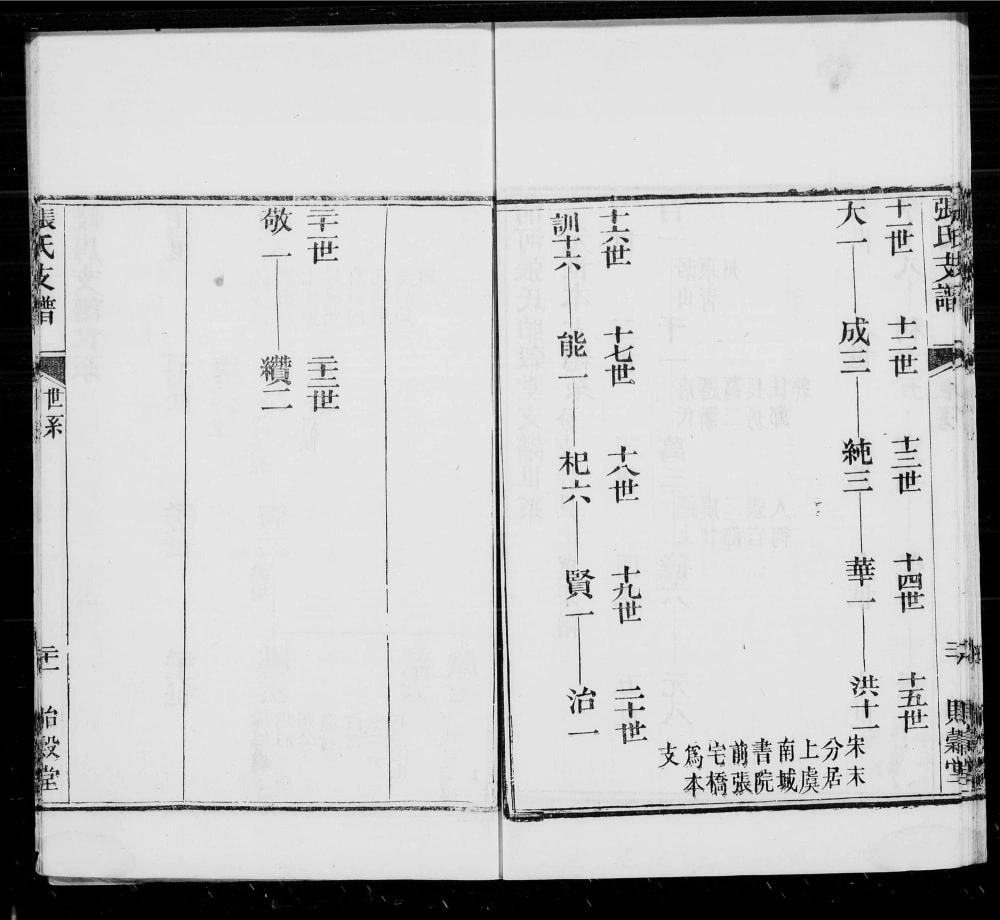 張氏支譜
十一世 十二世 十三世 十四世 十五世
大一 成三 純三 華一 洪十一
宋末
分居
上虞
南城
書院
前張
宅橋
為本
支
十六世 十七世 十八世 十九世 二十世
訓十六 能一 杞六 賢一 治一
二十一世 二十二世
敬一 纘二
張氏支譜 世系 二十一 詒穀堂